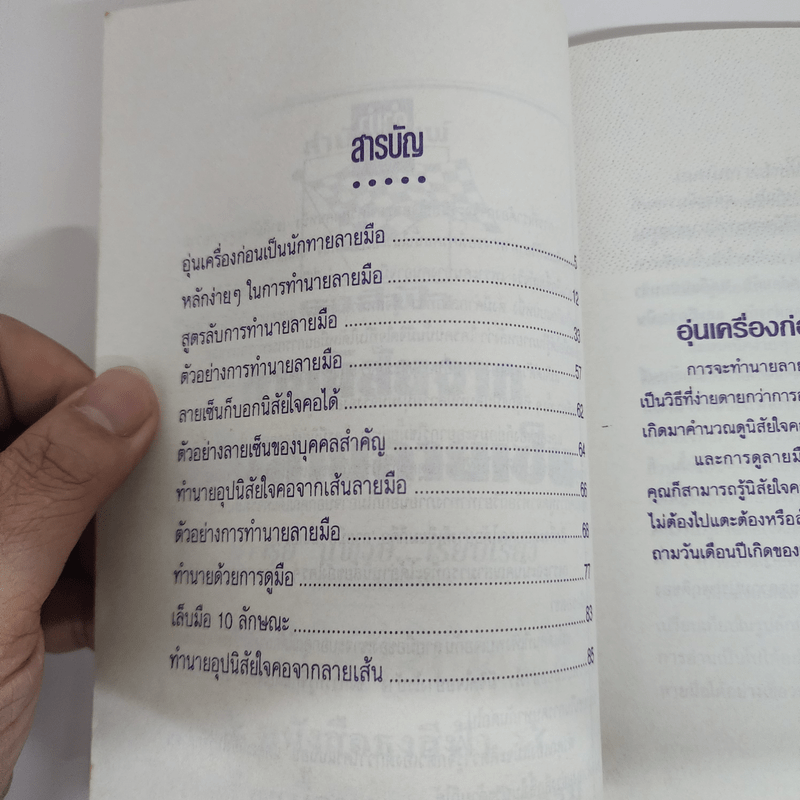 สารบัญ
อุ่นเครื่องก่อนเป็นนักทายลายมือ ........................ 5
หลักง่ายๆ ในการทำนายลายมือ ........................ 12
สูตรลับการทำนายลายมือ ........................ 33
ตัวอย่างการทำนายลายมือ ........................ 57
ลายเซ็นก็บอกนิสัยใจคอได้ ........................ 62
ตัวอย่างลายเซ็นของบุคคลสำคัญ ........................ 64
ทำนายอุปนิสัยใจคอจากเส้นลายมือ ........................ 66
ตัวอย่างการทำนายลายมือ ........................ 68
ทำนายด้วยการดูมือ ........................ 77
เล็บมือ 10 ลักษณะ ........................ 83
ทำนายอุปนิสัยใจคอจากลายเส้น ........................ 85
อุ่นเครื่องก่อ
การจะทำนายลาย
เป็นวิธีที่ง่ายดายกว่าการ
เกิดมาคำนวณดูนิสัยใจค
และการดูลายมื
คุณก็สามารถรู้นิสัยใจค
ไม่ต้องไปแตะต้องหรือ
ถามวันเดือนปีเกิดของ